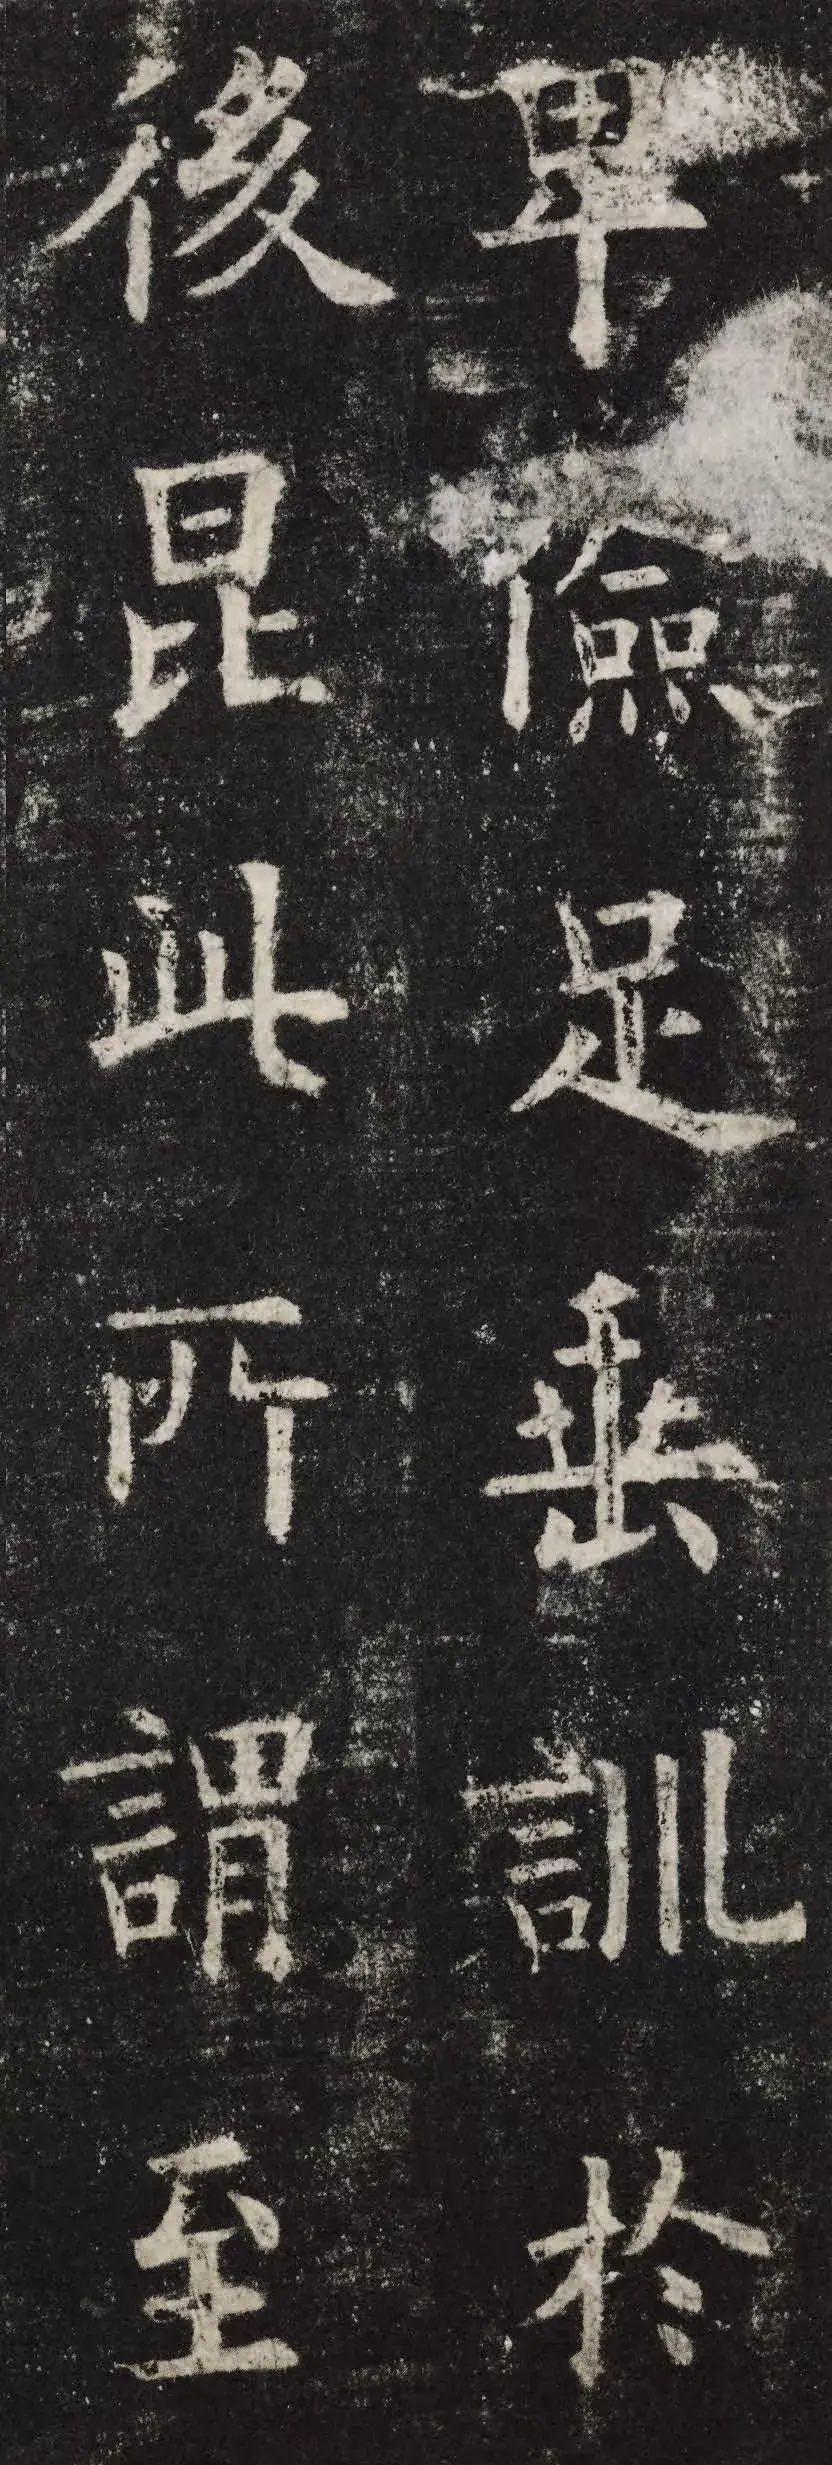 卑儉足垂訓於
後昆此所謂至